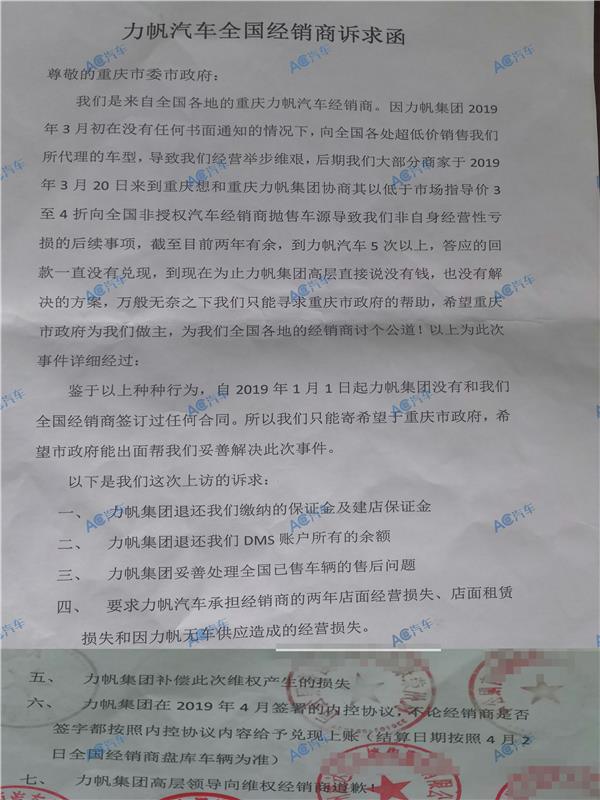 力帆汽车全国经销商诉求函
尊敬的重庆市委市政府：
我们是来自全国各地的重庆力帆汽车经销商。因力帆集团 2019
年 3 月初在没有任何书面通知的情况下，向全国各处超低价销售我们
所代理的车型，导致我们经营举步维艰，后期我们大部分商家于 2019
年 3 月 20 日来到重庆想和重庆力帆集团协商其以低于市场指导价 3
至 4 折向全国非授权汽车经销商抛售车源导致我们非自身经营性亏
损的后续事项，截至目前两年有余，到力帆汽车 5 次以上，答应的回
款一直没有兑现，到现在为止力帆集团高层直接说没有钱，也没有解
决的方案，万般无奈之下我们只能寻求重庆市政府的帮助，希望重庆
市政府为我们做主，为我们全国各地的经销商讨个公道！以上为此次
事件详细经过：
鉴于以上种种行为，自 2019 年 1 月 1 日起力帆集团没有和我们
全国经销商签订过任何合同。所以我们只能寄希望于重庆市政府，希
望市政府能出面帮我们妥善解决此次事件。
以下是我们这次上访的诉求：
一、 力帆集团退还我们缴纳的保证金及建店保证金
二、 力帆集团退还我们 DMS 账户所有的余额
三、 力帆集团妥善处理全国已售车辆的售后问题
四、 要求力帆汽车承担经销商的两年店面经营损失、店面租赁
损失和因力帆无车供应造成的经营损失。
五、 力帆集团补偿此次维权产生的损失
六、 力帆集团在 2019 年 4 月签署的内控协议，不论经销商是否
签字都按照内控协议内容给予兑现上账（结算日期按照 4 月 2
日全国经销商盘库车辆为准）
七、 力帆集团高层领导向维权经销商道歉！